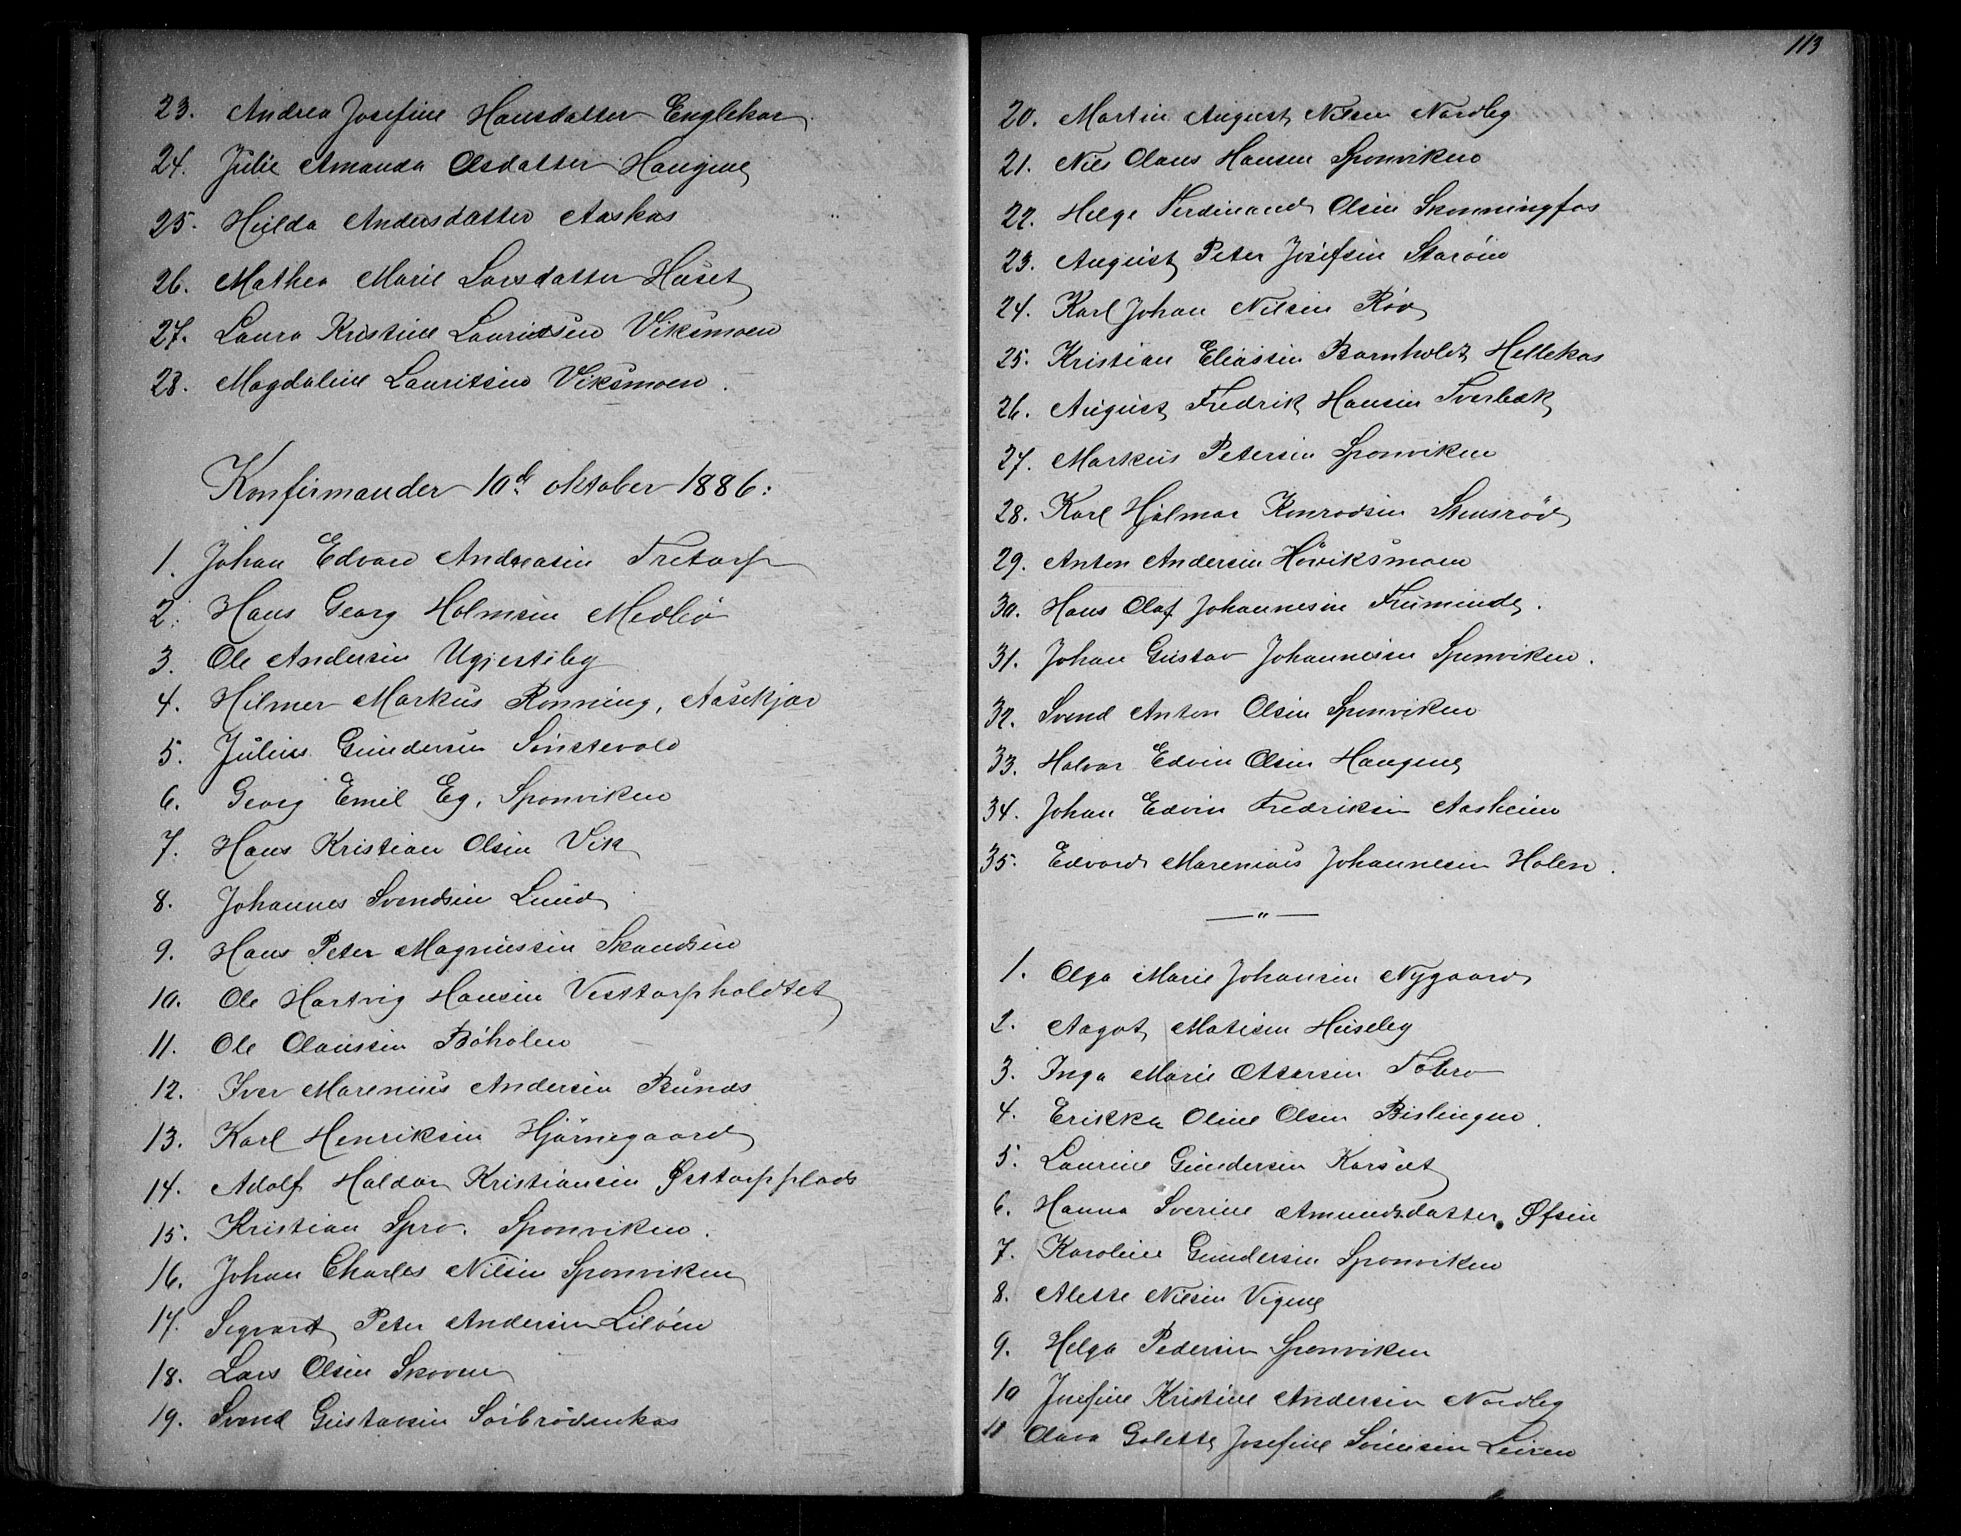 23. Andrea Josefine Hansdatter Englekor
24. Julie Amanda Olsdatter Haugene
25. Hulda Andersdatter Aaskas
26. Mathea Marie Larsdatter Huset
27. Laura Kristine Lauritsen Viksmoen
28. Magdaline Lauritsen Viksmoen.
Konfirmander 10de oktober 1886:
1. Johan Edvard Andreasen Tretorp
2. Hans Georg Holmsen Medbø
3. Ole Andersen Ugjestiby
4. Hilmer Markus Rønning, Aasekjær
5. Julius Gundersen Sønstevold
6. Georg Emil Eg, Sponviken
7. Hans Kristian Olsen Vik
8. Johannes Svendsen Lund
9. Hans Peter Magnussen Skandsen
10. Ole Hartvig Hansen Vesttorpholdtet
11. Ole Claussen Bøholen
12. Iver Marenius Andersen Runds
13. Karl Henriksen Hjørnegaard
14. Adolf Haldor Kristiansen Østtorpplads
15. Kristian Spro. Sponviken.
16. Johan Charles Nilsen Sponviken
17. Sigvart Peter Andersen Liløen
18. Lars Olsen Skoven
19. Svend Gustavsen Sørbrødenkas
113
20. Martin August Nilsen Nordby
21. Nils Olaus Hansen Sponviken
22. Helge Ferdinand Olsen Skonningfos
23. August Peter Josefsen Storøen
24. Karl Johan Nilsen Røv
25. Kristian Eliassen Bornholdt Hellekas
26. August Fredrik Hansen Tverbæk
27. Markus Petersen Sponviken
28. Karl Hjalmar Konrodsen Stensrød
29. Anton Andersen Høviksmoen
30. Hans Olaf Johannesen
31. Johan Gustav Johannesen Sponviken.
32. Svend Anton Olsen Sponviken
33. Halvor Edvin Olsen Haugene
34. Johan Edvin Fredriksen Aasheim
35. Edvard Marenius Johannesen Holen.
— " —
1. Olga Marie Johansen Nygaard
2. Aagot Matisen Huseby
3. Inga Marie Ottersen Tobro
4. Erikka Oline Olsen Bislingen.
5. Laurine Gundersen Korsæt
6. Hanna Severine Amundsdatter Øfsen
7. Karoline Gundersen Sponviken
8. Alette Nilsen Vigene
9. Helga Pedersen Sponviken
10 Josefine Kristine Andersen Nordby
11 Olava Golette Josefine Sørensen Leiren